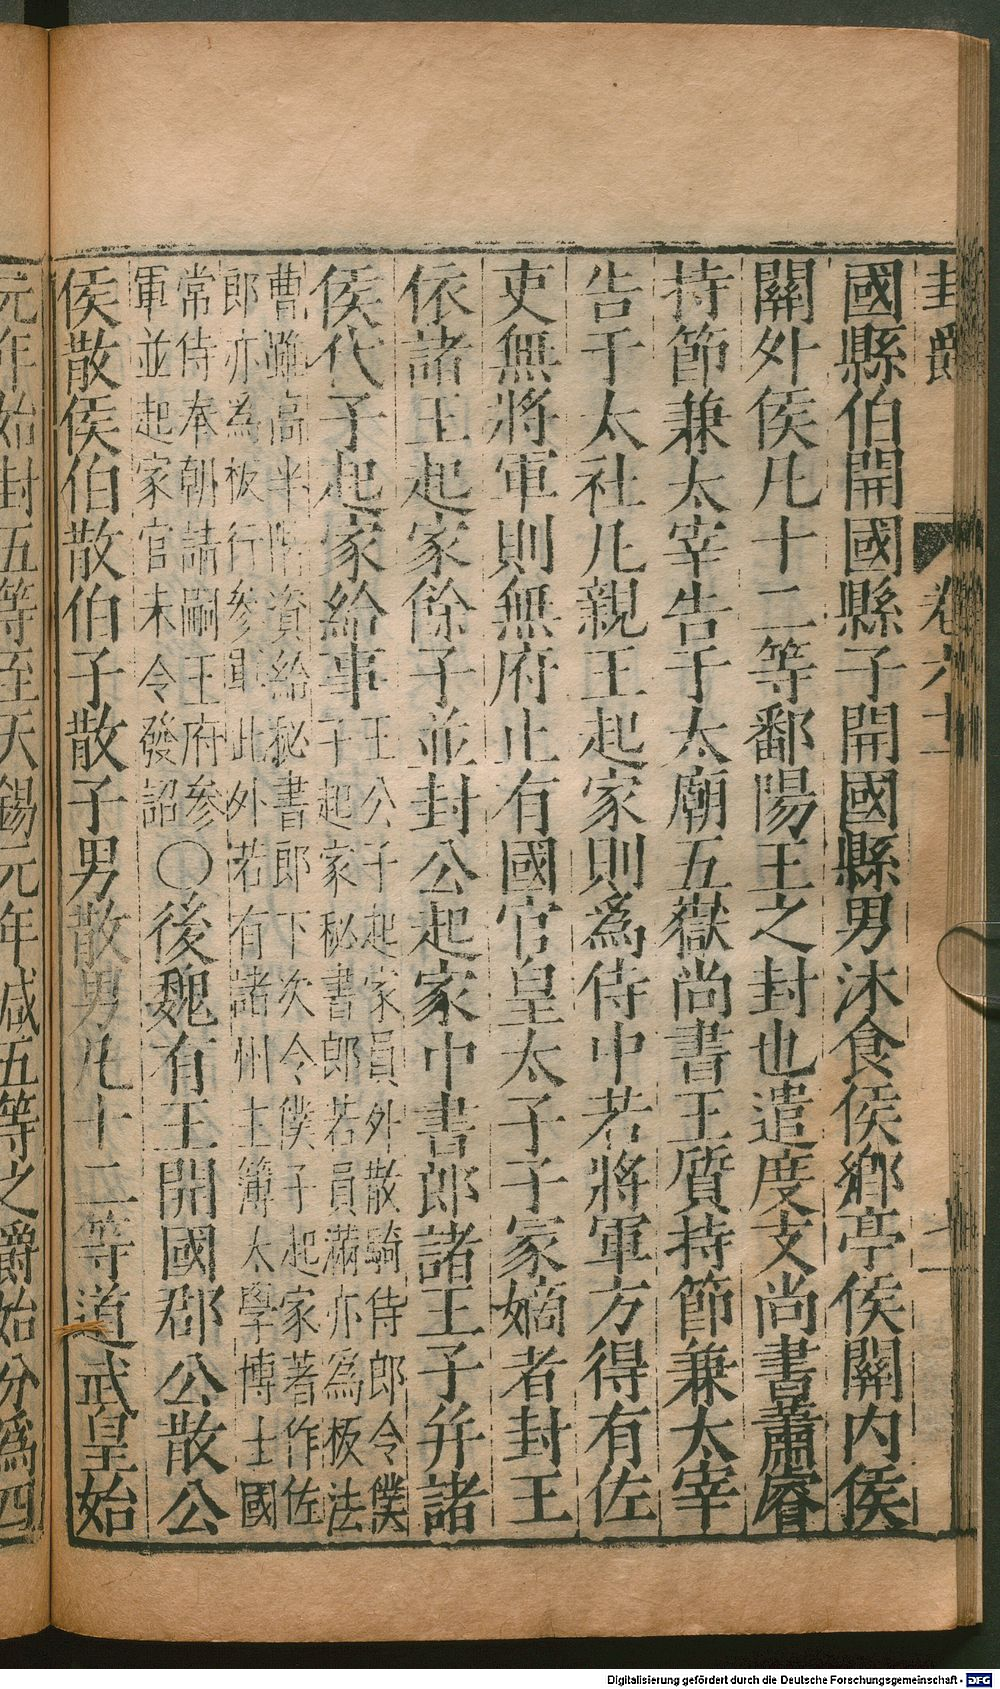 封爵 卷六十
國縣伯開國縣子開國縣男沐食侯鄉亭侯關內侯
關外侯凡十二等鄱陽王之封也遣度支尚書蕭睿
持節兼太宰告于太廟五嶽尚書王質持節兼太宰
告于太社凡親王起家則爲侍中若將軍方得有佐
吏無將軍則無府止有國官皇太子子冢嫡者封王
依諸王起家餘子並封公起家中書郎諸王子并諸
侯代子起家給事
王公子起家員外散騎侍郎令僕
子起家秘書郎若員滿亦為板法
曹雖高半階資給秘書郎下次令僕子起家著作佐
郎亦為板行參軍此外若有諸州主簿太學博士國
常侍奉朝請嗣王府參
軍並起家官未令發詔
○後魏有王開國郡公散公
侯散侯伯散伯子散子男散男凡十二等道武皇始
元年始封五等至天錫元年減五等之爵始分爲四
Digitalisierung gefördert durch die Deutsche Forschungsgemeinschaft - DFG